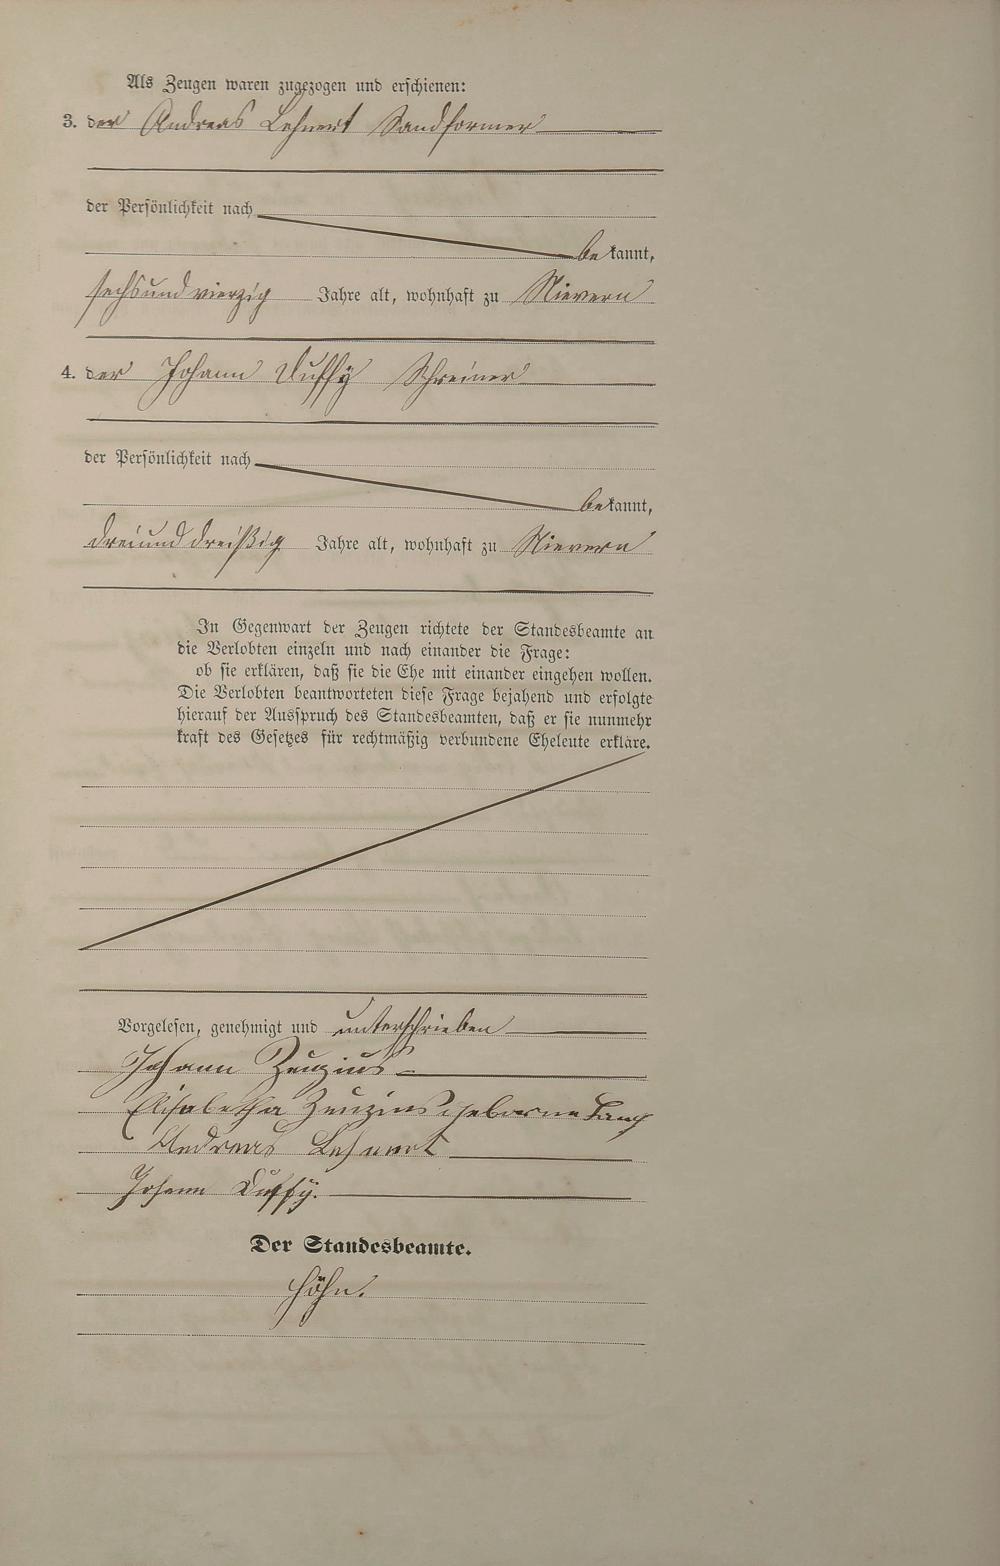 Als Zeugen waren zugezogen und erschienen:
3. der Andreas Lehnert Sandformer
der Persönlichkeit nach
bekannt,
sechsundvierzig Jahre alt, wohnhaft zu Nievern
4. der Johann Duffy Schreiner
der Persönlichkeit nach
bekannt,
dreiunddreißig Jahre alt, wohnhaft zu Nievern
In Gegenwart der Zeugen richtete der Standesbeamte an
die Verlobten einzeln und nach einander die Frage:
ob sie erklären, daß sie die Ehe mit einander eingehen wollen.
Die Verlobten beantworteten diese Frage bejahend und erfolgte
hierauf der Ausspruch des Standesbeamten, daß er sie nunmehr
kraft des Gesetzes für rechtmäßig verbundene Eheleute erkläre.
Vorgelesen, genehmigt und unterschrieben
Johann Zenzius
Elisabetha Zenzius geborne Lang
Andreas Lehnert
Johann Duffy.
Der Standesbeamte.
Höhn.